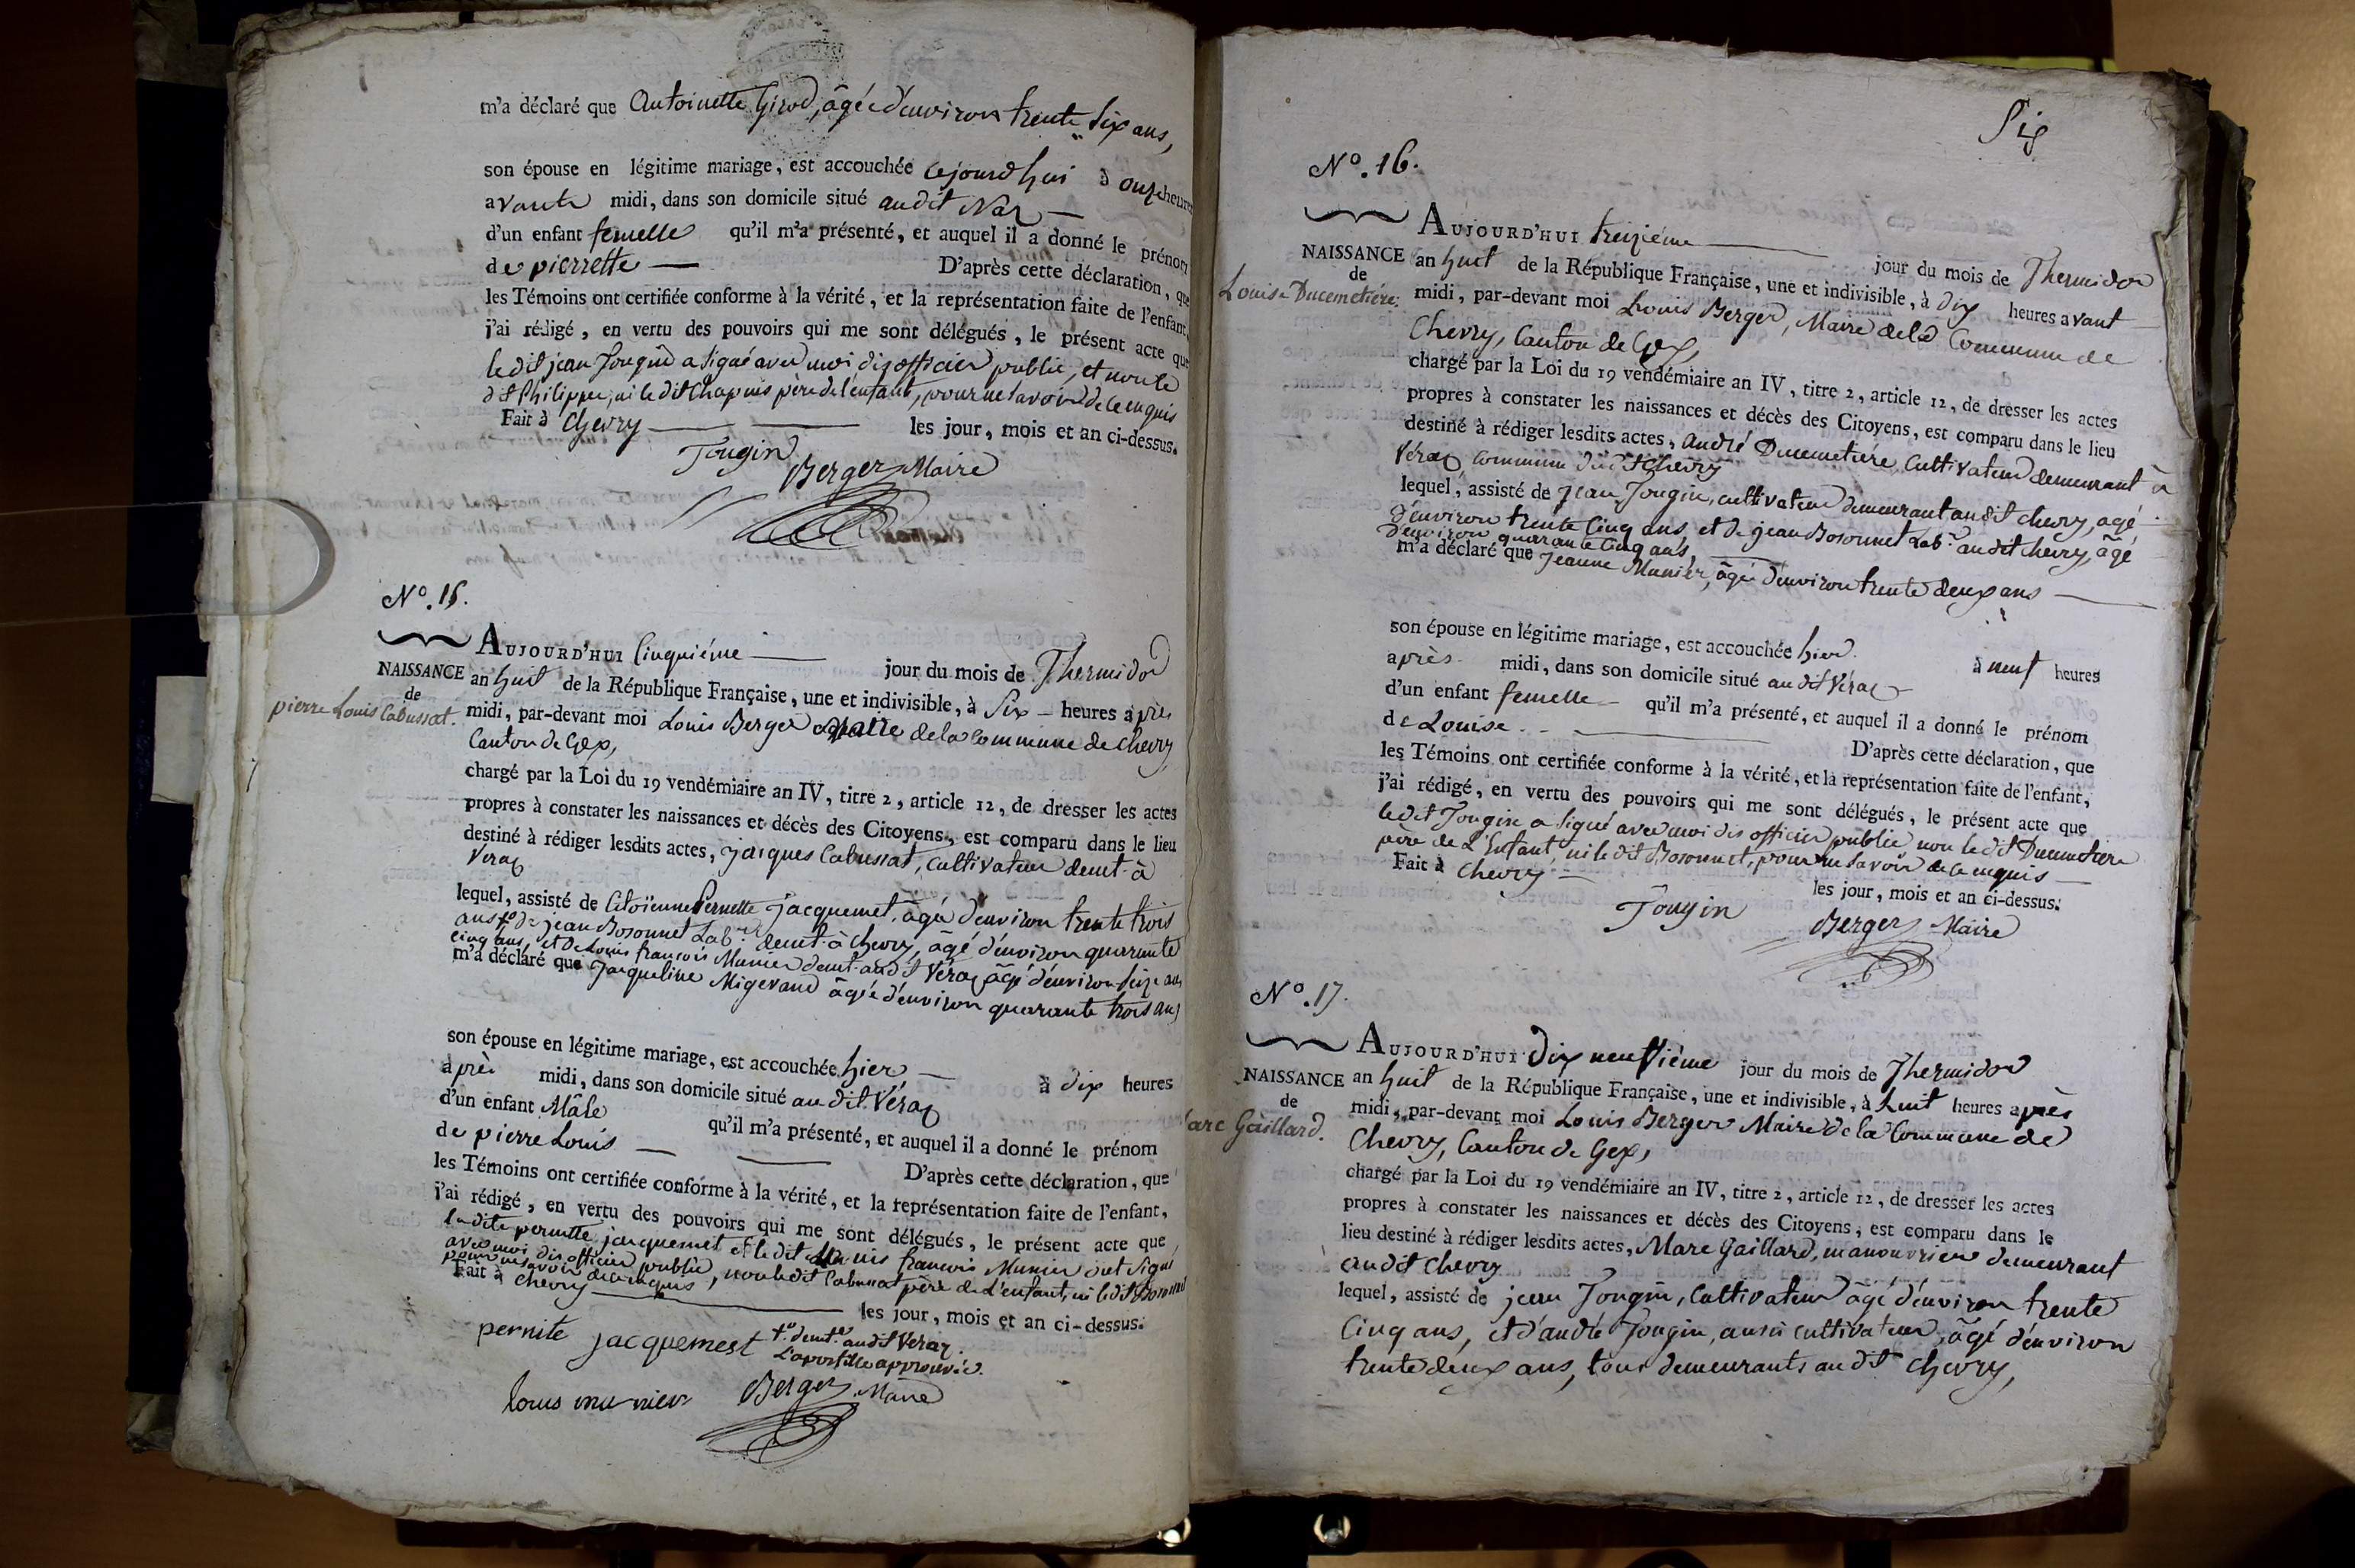 m'a déclaré que Antoinette Girod, âgée d'environ trente Six ans,
son épouse en légitime mariage, est accouchée cejourd'hui à onze heures
avant midi, dans son domicile situé audit Naz
d'un enfant femelle qu'il m'a présenté, et auquel il a donné le prénom
de pierrette D'après cette déclaration, que
les Témoins ont certifiée conforme à la vérité, et la représentation faite de l'enfant,
j'ai rédigé, en vertu des pouvoirs qui me sont délégués, le présent acte que
le dit jean Fougin a signé avec moi dis officier public, et non le
dit Philippe, ni le dit Chapuis père de l'enfant, pour ne savoir de ce enquis
Fait à Chevry les jour, mois et an ci-dessus.
Fougin
Berger Maire
N.º 15.
AUJOURD'HUI Cinquiéme jour du mois de Thermidor
NAISSANCE an huit de la République Française, une et indivisible, à Six heures après
de
pierre Louis Cabussat. midi, par-devant moi Louis Berger Maire de la Commune de chevry
Canton de Gex,
chargé par la Loi du 19 vendémiaire an IV, titre 2, article 12, de dresser les actes
propres à constater les naissances et décès des Citoyens, est comparu dans le lieu
destiné à rédiger lesdits actes, jacques Cabussat, cultivateur demt. à
Veraz
lequel, assisté de Citoïenne Pernette jacquemet, âgée d'environ trente trois
ans tº de jean Bosonnet Labr. demt. à Chevry, âgé d'environ quarante
cinq ans, et de Louis françois Munier demt. audit Véraz âgé d'environ seize ans
m'a déclaré que Jacqueline Migerand âgée d'environ quarante trois ans
son épouse en légitime mariage, est accouchée hier à dix heures
après midi, dans son domicile situé audit Véraz
d'un enfant Mâle qu'il m'a présenté, et auquel il a donné le prénom
de pierre Louis D'après cette déclaration, que
les Témoins ont certifiée conforme à la vérité, et la représentation faite de l'enfant,
j'ai rédigé, en vertu des pouvoirs qui me sont délégués, le présent acte que
ladite pernette jacquemet et le dit Louis francois Munier ont signé
avec moi dis officier public, non ledit Cabussat père de L'enfant, ni le dit Bosonnet
pour ne savoir de ce enquis
Fait à chevry les jour, mois et an ci-dessus.
pernite jacquemest tº. demte. audit Veraz.
L'apostille approuvée.
louis munier Berger Maire
Six
N.º 16.
AUJOURD'HUI treiziéme jour du mois de Thermidor
NAISSANCE an huit de la République Française, une et indivisible, à dix heures avant
de
Louise Ducemetiére. midi, par-devant moi Louis Berger, Maire de la Commune de
Chevry, Canton de Gex,
chargé par la Loi du 19 vendémiaire an IV, titre 2, article 12, de dresser les actes
propres à constater les naissances et décès des Citoyens, est comparu dans le lieu
destiné à rédiger lesdits actes, André Ducemetiére, Cultivateur demeurant à
Véraz, commune dudit Chevry
lequel, assisté de Jean Fougin, cultivateur demeurant audit chevry, agé
d'environ trente Cinq ans, et de jean Bosonnet Labr. audit chevry, âgé
d'environ quarante Cinq ans,
m'a déclaré que Jeanne Munier, âgée d'environ trente deux ans
son épouse en légitime mariage, est accouchée hier à neuf heures
après midi, dans son domicile situé audit Véraz
d'un enfant femelle qu'il m'a présenté, et auquel il a donné le prénom
de Louise. D'après cette déclaration, que
les Témoins ont certifiée conforme à la vérité, et la représentation faite de l'enfant,
j'ai rédigé, en vertu des pouvoirs qui me sont délégués, le présent acte que
ledit Fougin a signé avec moi dis officier public non le dit Ducemetiere
père de L'Enfant, ni le dit Bosonnet, pour ne savoir de ce enquis
Fait à Chevry les jour, mois et an ci-dessus.
Fougin
Berger Maire
N.º 17.
AUJOURD'HUI dix neuvième jour du mois de Thermidor
NAISSANCE an huit de la République Française, une et indivisible, à huit heures après
de
arc Gaillard. midi, par-devant moi Louis Berger Maire de la Commune de
Chevry, Canton de Gex,
chargé par la Loi du 19 vendémiaire an IV, titre 2, article 12, de dresser les actes
propres à constater les naissances et décès des Citoyens, est comparu dans le
lieu destiné à rédiger lesdits actes, Marc Gaillard, manouvrier demeurant
audit Chevry
lequel, assisté de jean Fougin, Cultivateur âgé d'environ trente
Cinq ans, et d'andré Fougin, aussi cultivateur, âgé d'environ
trente deux ans, tous demeurants audit Chevry,